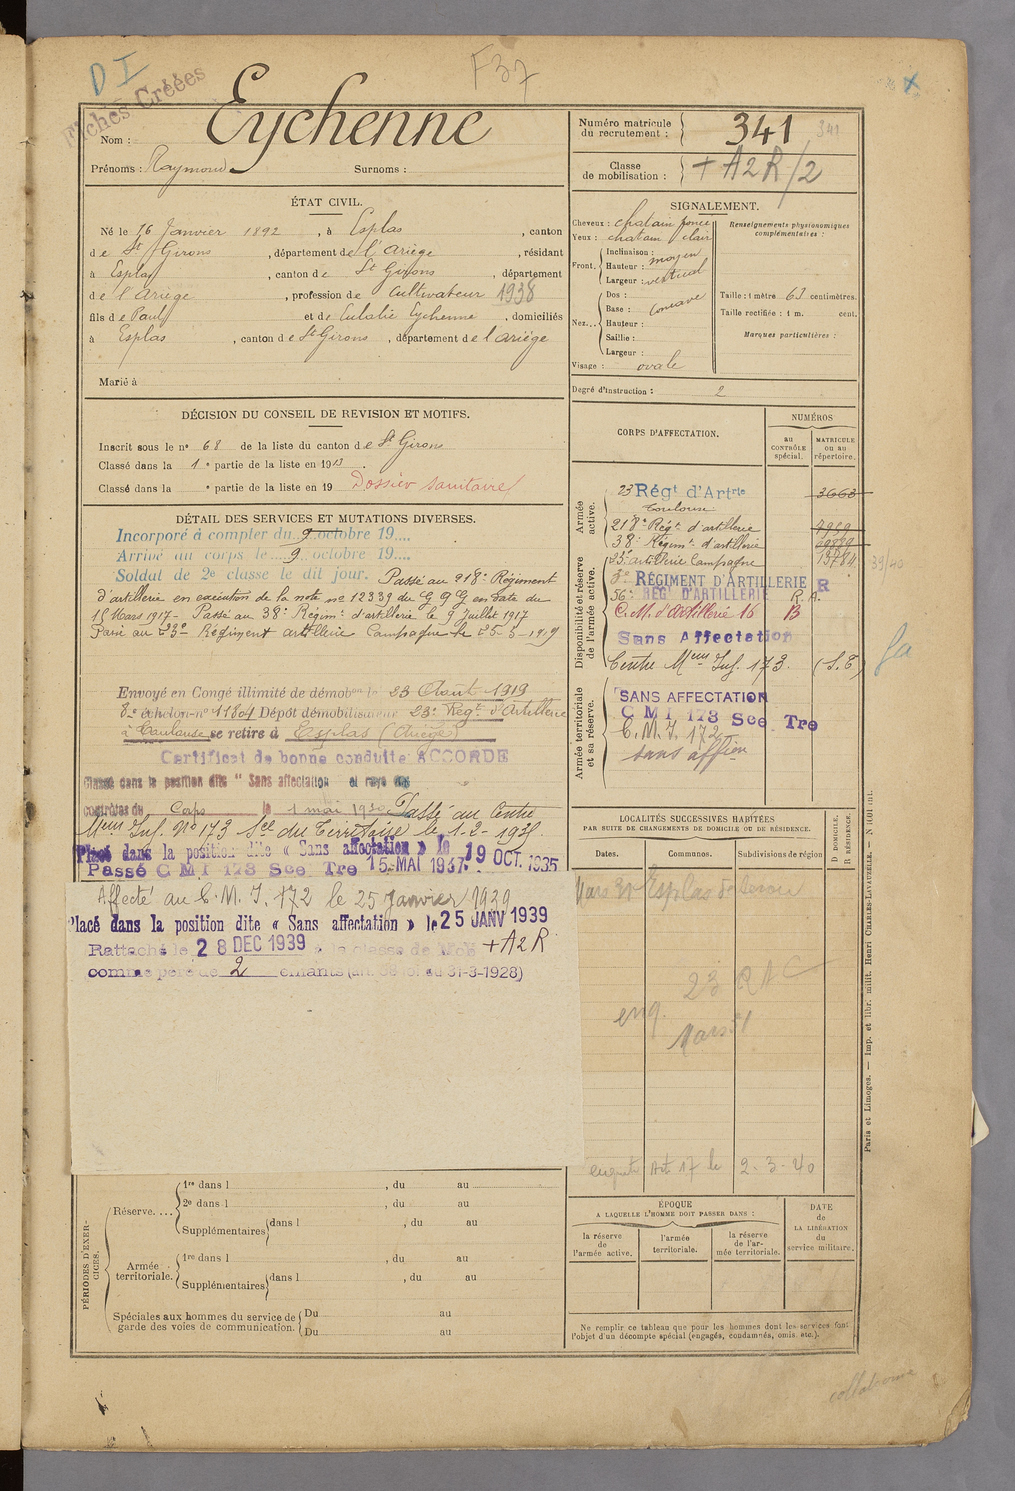 D I
F 37
Fiches Créées
Nom : Eychenne
Prénoms : Raymond Surnoms :
Numéro matricule du recrutement : 341 341
Classe de mobilisation : + A 2 R/2
ÉTAT CIVIL.
Né le 16 Janvier 1892, à Esplas, canton
de St Girons, département de l'Ariège, résidant
à Esplas, canton de St Girons, département
de l'Ariège, profession de Cultivateur 1938
fils de Paul et de Eulalie Eychenne, domiciliés
à Esplas, canton de St Girons, département de l'Ariège
Marié à
SIGNALEMENT.
Cheveux : chatain foncé
Yeux : chatain clair
Front. Inclinaison :
Hauteur : moyen
Largeur : vertical
Nez... Dos :
Base : Concave
Hauteur :
Saillie :
Largeur :
Visage : ovale
Renseignements physionomiques complémentaires :
Taille : 1 mètre 63 centimètres.
Taille rectifiée : 1 m. cent.
Marques particulières :
Degré d'instruction : 2
DÉCISION DU CONSEIL DE REVISION ET MOTIFS.
Inscrit sous le n° 68 de la liste du canton de St Girons
Classé dans la 1e partie de la liste en 1913.
Classé dans la e partie de la liste en 19 Dossier sanitaire
DÉTAIL DES SERVICES ET MUTATIONS DIVERSES.
Incorporé à compter du 9 octobre 19....
Arrivé au corps le 9 octobre 19....
Soldat de 2e classe le dit jour. Passé au 218e Régiment
d'artillerie en exécution de la note no 12339 du G Q G en date du
15 Mars 1917 - Passé au 38e Régimt d'artillerie le 9 Juillet 1917
Passé au 23e Régiment artillerie Campagne le 25-5-1919
Envoyé en Congé illimité de démobon le 23 Août 1919
8e échelon n° 11804 Dépôt démobilisateur 23e Régt d'Artillerie
à Toulouse se retire à Esplas (Ariège)
Certificat de bonne conduite ACCORDÉ
Classé dans la position dite "Sans affectation et rayé des
contrôles du Corps le 1 mai 1930 Passé au Centre
Mem Inf. No 173 Sce du Territoire le 1-2-193
Placé dans la position dite « Sans affectation » le 19 OCT. 1935
Passé C M I 173 Sec Tre 15 MAI 1937.
Affecté au C.M.I. 172 le 25 janvier 1939
Placé dans la position dite « Sans affectation » le 25 JANV 1939
Rattaché le 28 DEC 1939 à la classe de Mob + A 2 R
comme père de 2 enfants (art. de loi du 31-3-1928)
CORPS D'AFFECTATION.
NUMÉROS
au CONTRÔLE spécial.
MATRICULE ou au répertoire.
Armée active.
23 Régt d'Artrie 3663
Toulouse
218e Régt d'artillerie
38e Régimt d'artillerie
Disponibilité et réserve de l'armée active.
23e artillerie Campagne
RÉGIMENT D'ARTILLERIE R
56e RÉG. D'ARTILLERIE R.A.
C.M. d'Artillerie 16 B
Sans Affectation
Centre Mem Inf. 173. (S.T)
39/40
Armée territoriale et sa réserve.
SANS AFFECTATION
C M I 173 Sec Tre
C.M.I. 172
sans affon
LOCALITÉS SUCCESSIVES HABITÉES
PAR SUITE DE CHANGEMENTS DE DOMICILE OU DE RÉSIDENCE.
Dates. Communes. Subdivisions de région
D DOMICILE, R RÉSIDENCE.
Mars 31 Esplas de Serou
23 R A C
enq.
Mars 31
enquête Art. 17 le 2-3-40
Paris et Limoges. — Imp. et libr. milit. Henri CHARLES-LAVAUZELLE.
PÉRIODES D'EXERCICES.
Réserve.... 1re dans l , du au
2e dans l , du au
Supplémentaires dans l , du au
Armée territoriale. 1re dans l , du au
Supplémentaires dans l , du au
Spéciales aux hommes du service de garde des voies de communication. Du au
Du au
ÉPOQUE
A LAQUELLE L'HOMME DOIT PASSER DANS :
la réserve de l'armée active.
l'armée territoriale.
la réserve de l'armée territoriale.
DATE de LA LIBÉRATION du service militaire.
Ne remplir ce tableau que pour les hommes dont les services font
l'objet d'un décompte spécial (engagés, condamnés, omis, etc.).